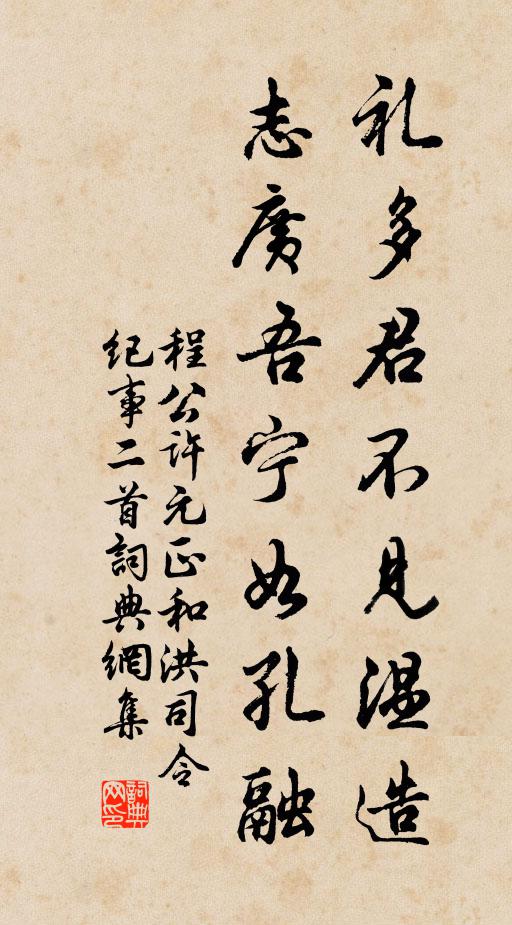 礼多君不见温造
志廣吾宁如孔融
程公许元正和洪司令
纪事二首詞典網集
詞典網印